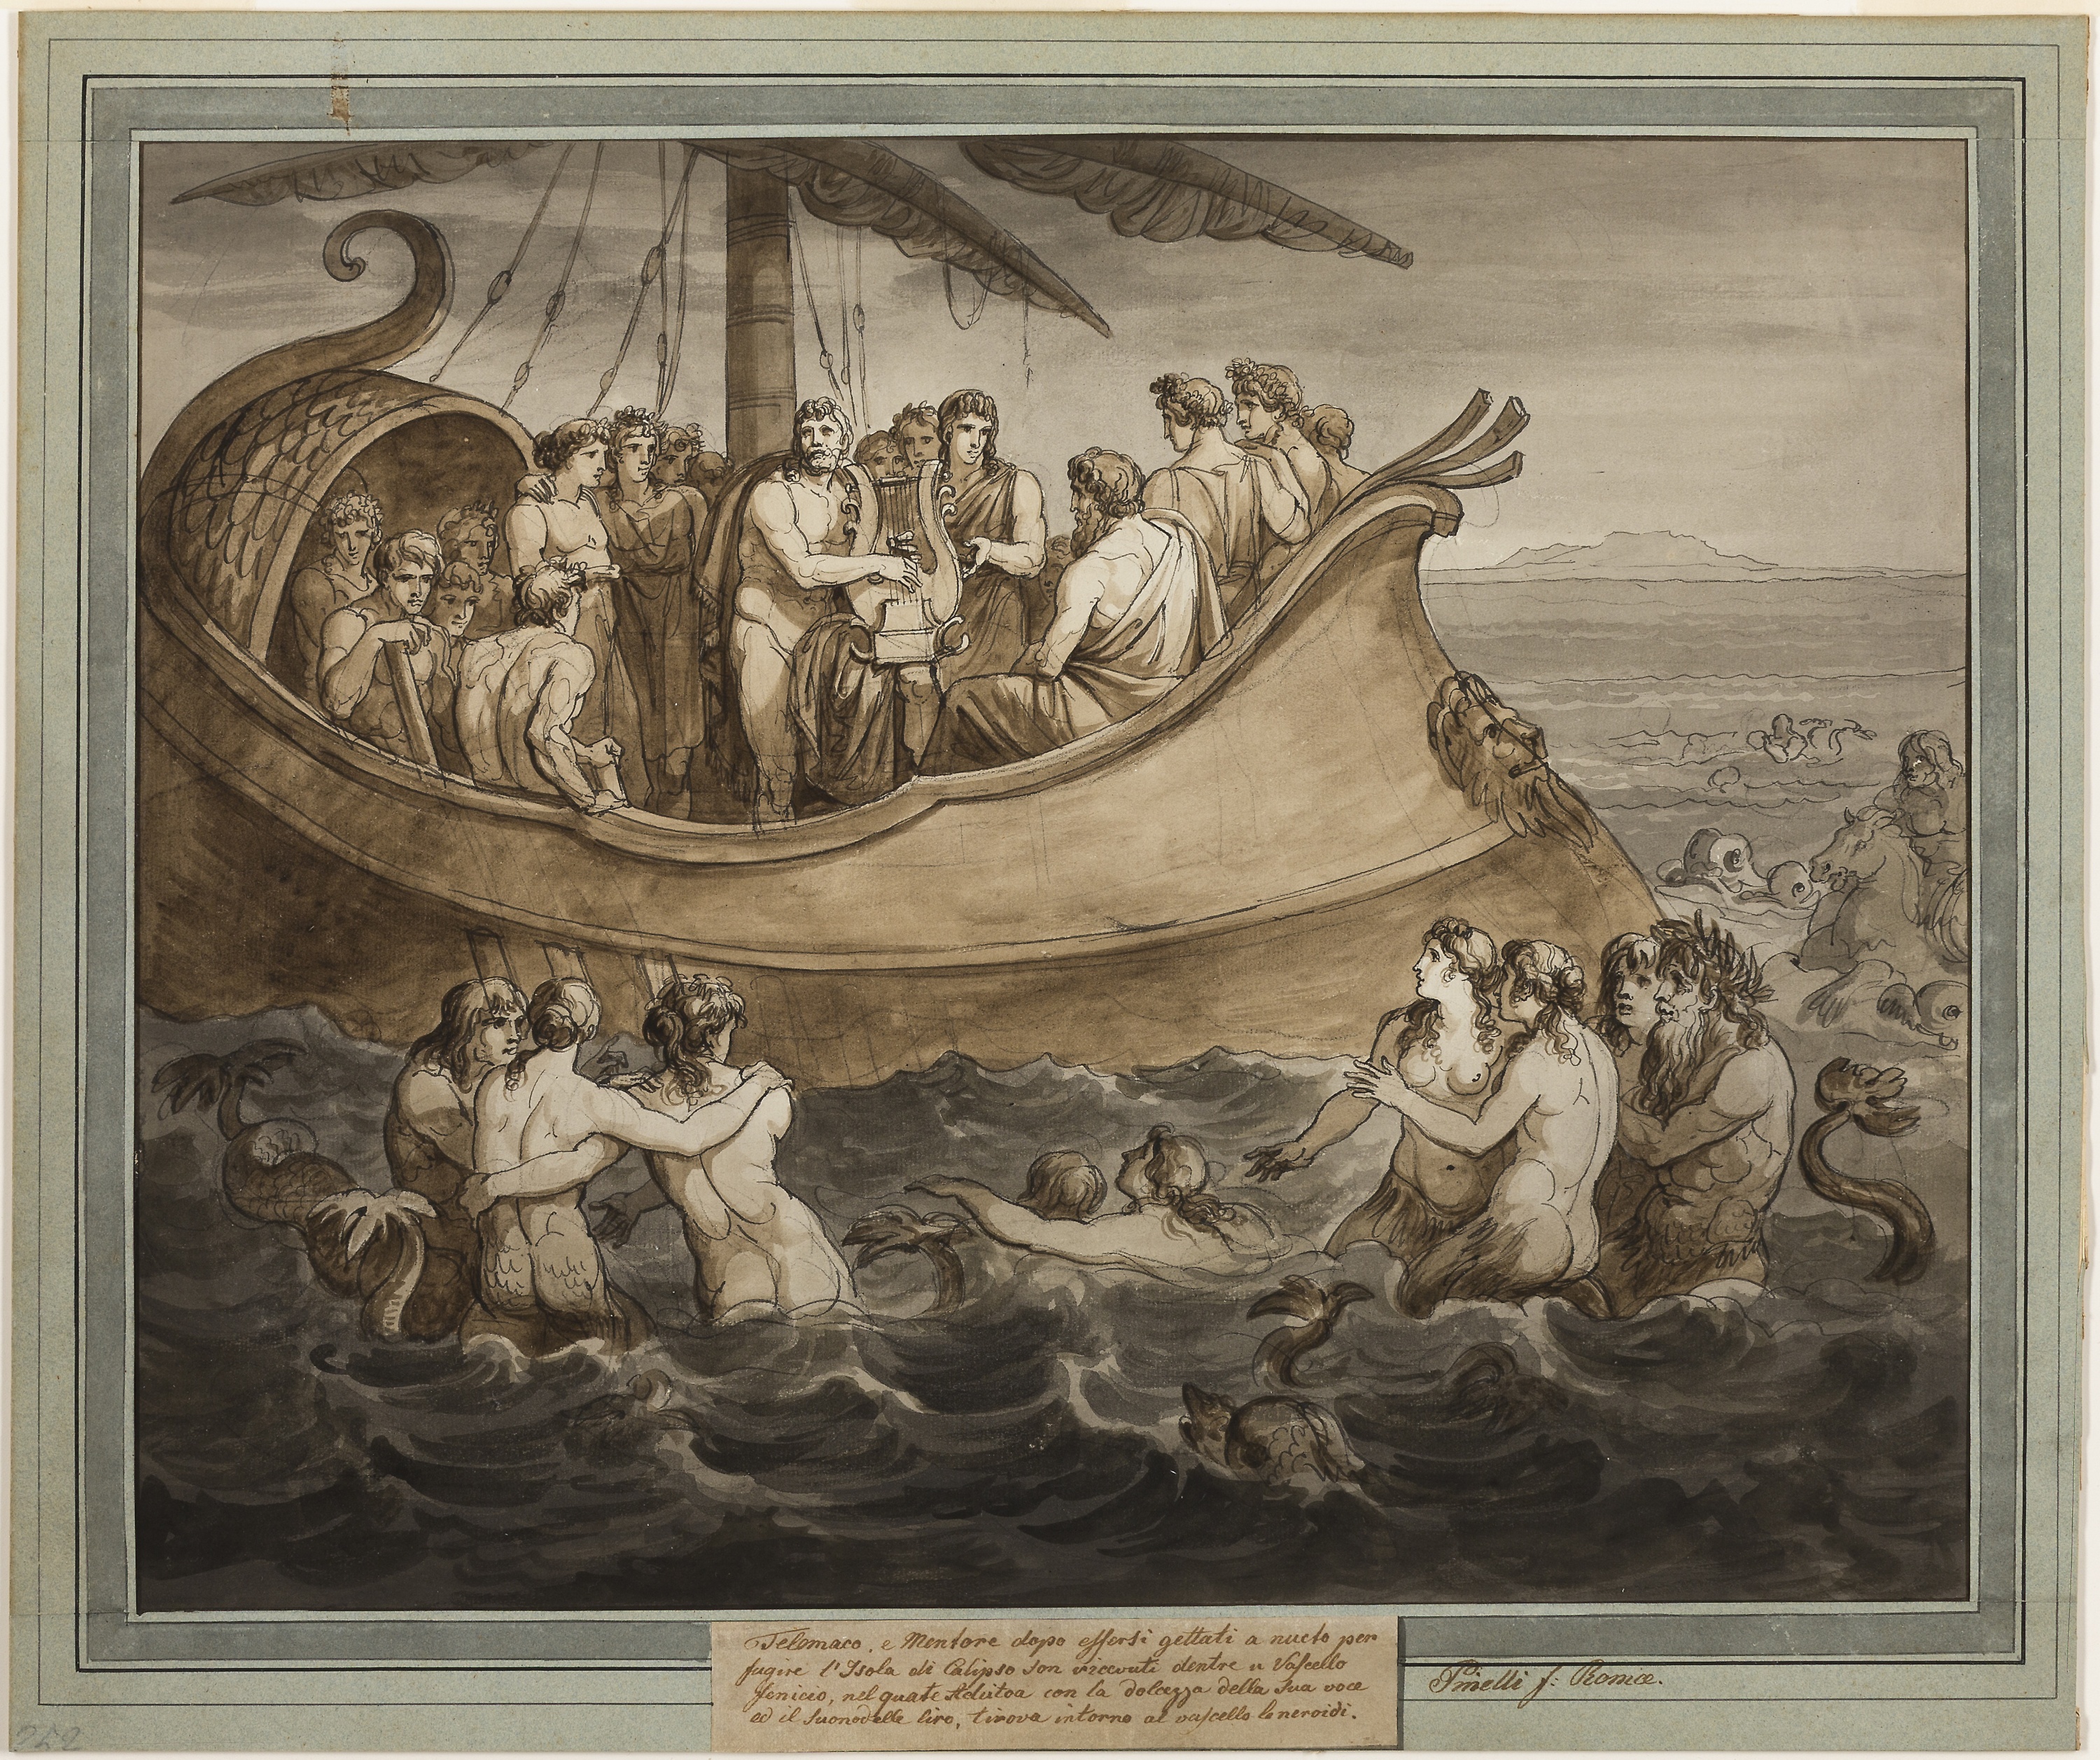 Telemaco, e Mentore dopo essersi gettati a nuoto per
fugire l'Isola di Calipso son ricevuti dentro u Vascello
fenicio, nel quale Adutoa con la dolcezza della Sua voce
ed il Suono delle lira, tirova intorno al vascello le neroidi.
Pinelli f: Romæ.
252